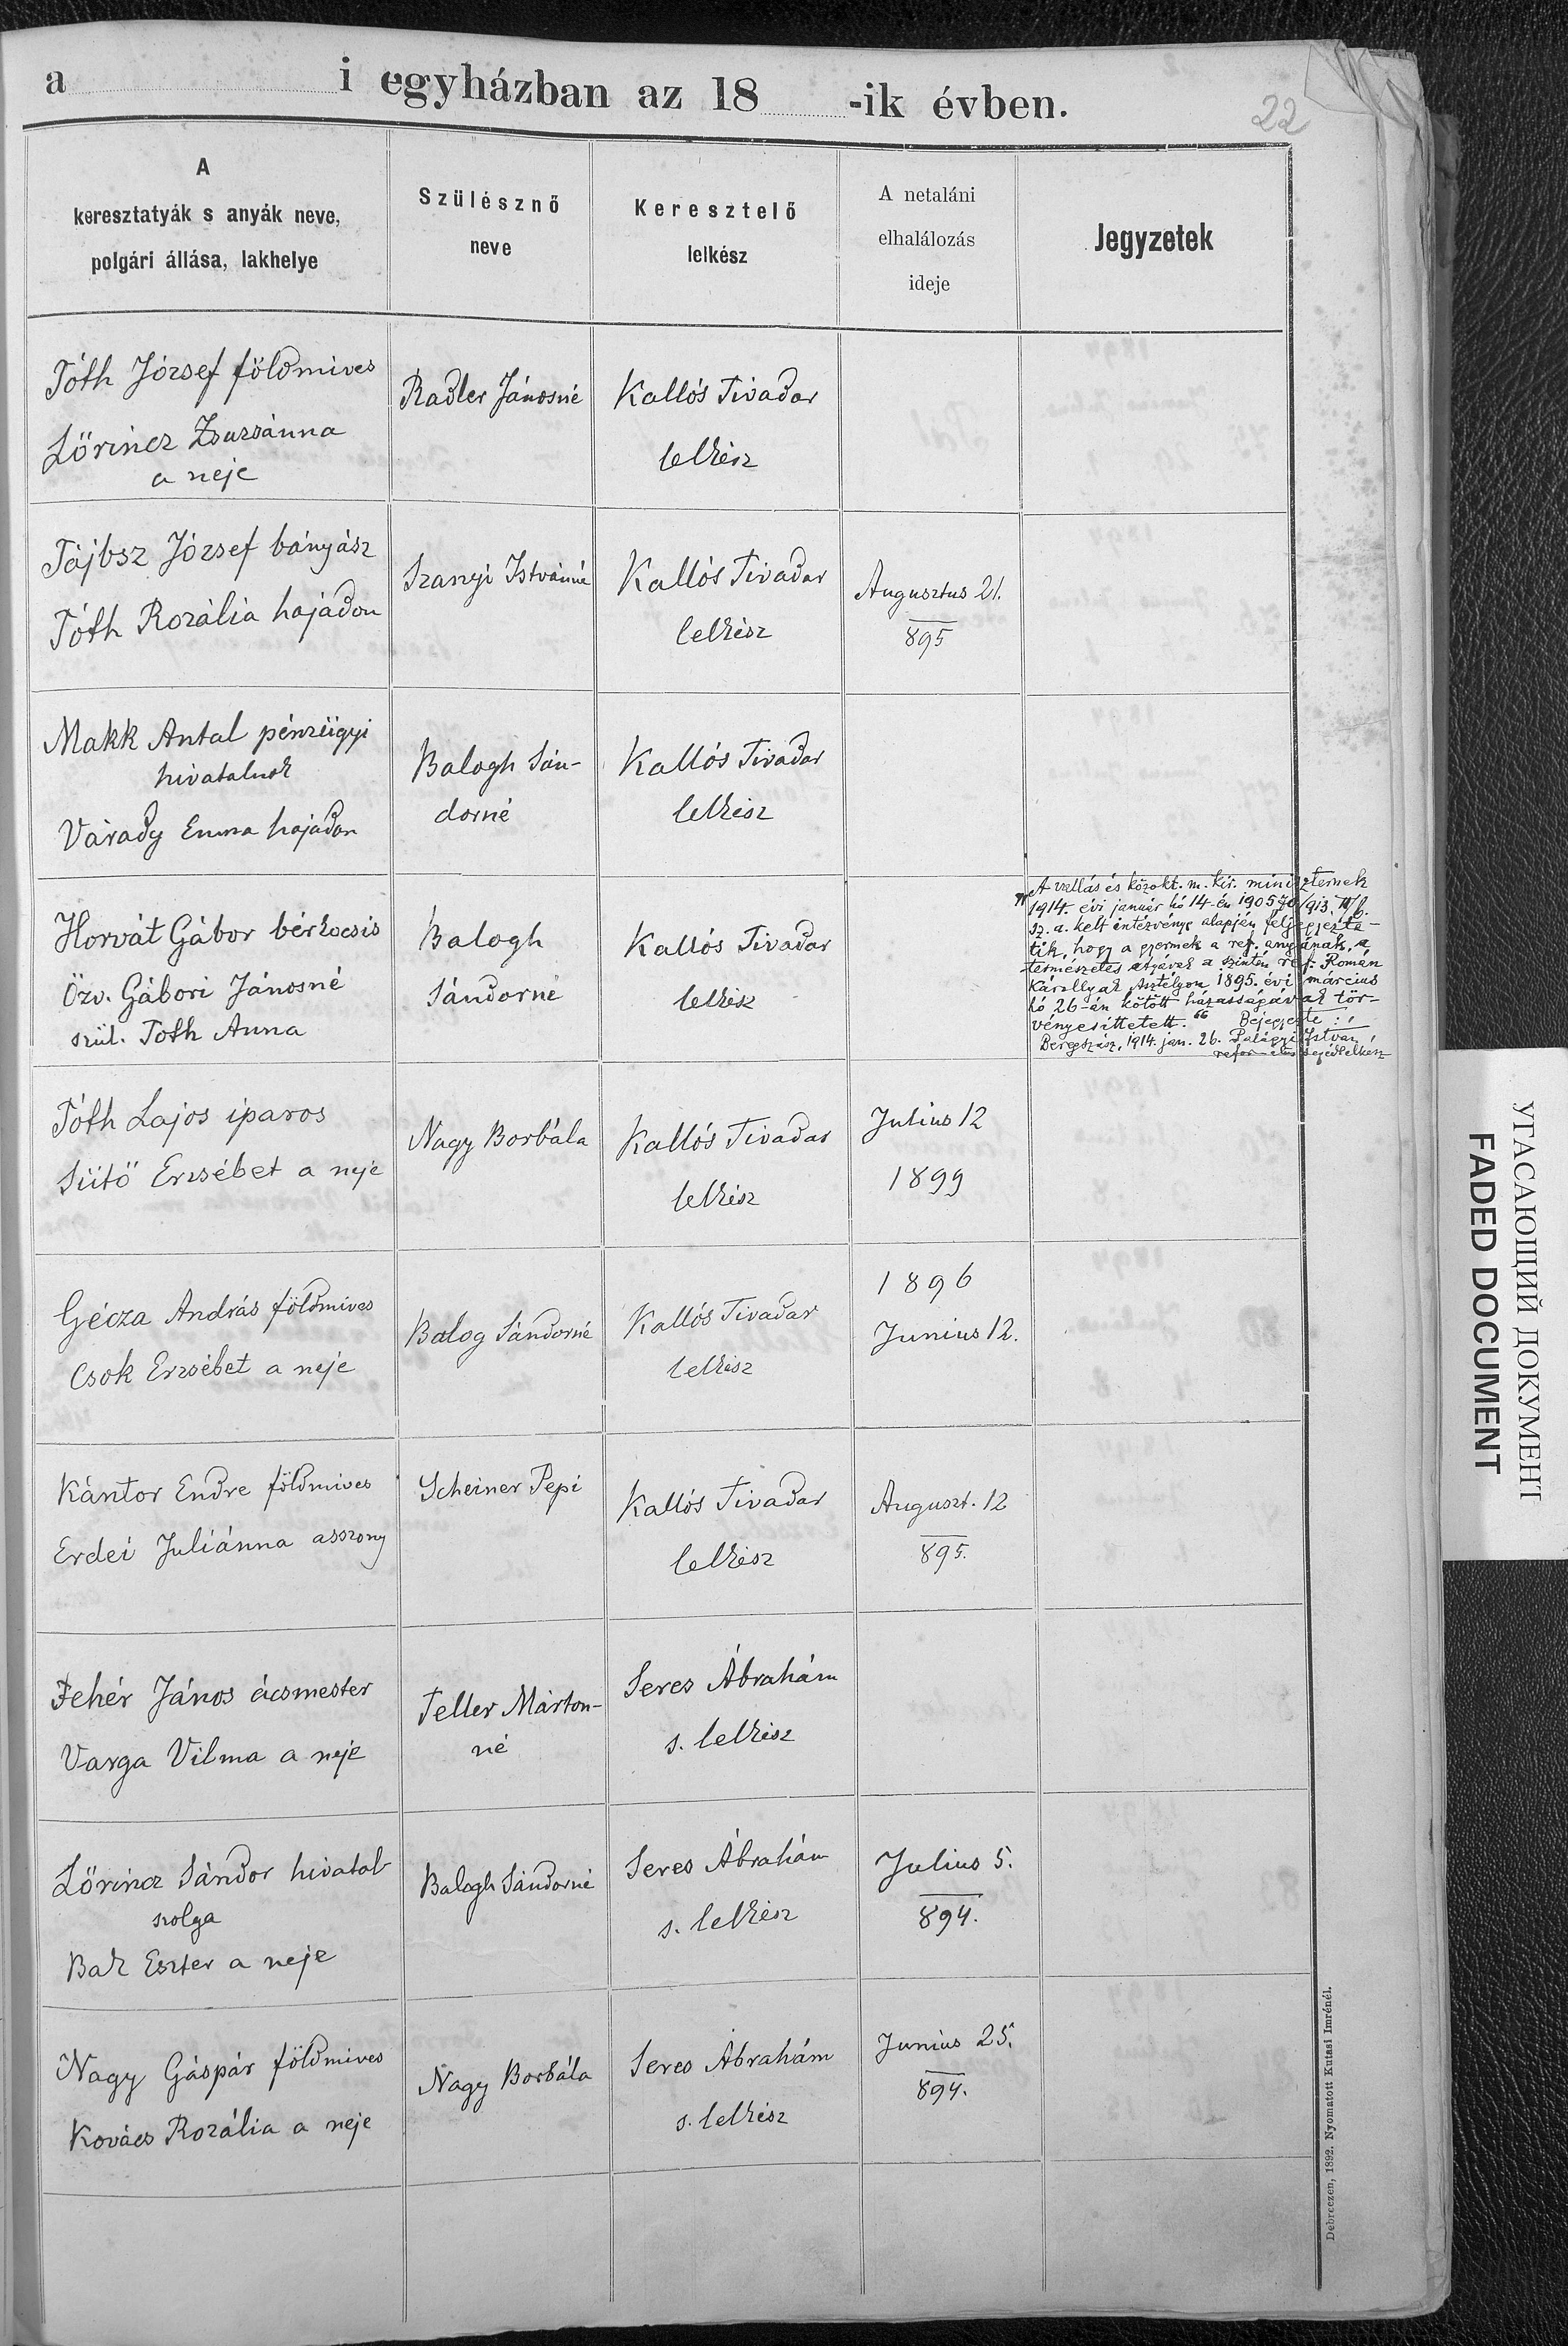 a i egyházban az 18 -ik évben.
22
A
keresztatyák s anyák neve,
polgári állása, lakhelye
Szülésznő
neve
Keresztelő
lelkész
A netaláni
elhalálozás
ideje
Jegyzetek
Tóth József földmives
Lőrincz Zsuzsánna
a neje
Radler Jánosné
Kallós Tivadar
lelkész
Tájbsz József bányász
Tóth Rozália hajadon
Szanyi Istvánné
Kallós Tivadar
lelkész
Augusztus 21.
895
Makk Antal pénzügyi
hivatalnok
Várady Emma hajadon
Balogh Sán-
dorné
Kallós Tivadar
lelkész
Horvát Gábor bérkocsis
Özv. Gábori Jánosné
szül. Tóth Anna
Balogh
Sándorné
Kallós Tivadar
lelkész
„A vallás és közokt. m. kir. miniszternek
1914. évi január hó 14-én 190570/913 III/b.
sz. a. kelt intézvénye alapján feljegyezte-
tik, hogy a gyermek a ref. anyjának, a
természetes atyával a szintén ref. Román
Károllyal Asztélyon 1895. évi március
hó 26-án kötött házasságával tör-
vényesíttetett.“ Bejegyezte:
Beregszász, 1914. jan. 26. Palágyi István
segédlelkész
Tóth Lajos iparos
Sütő Erzsébet a neje
Nagy Borbála
Kallós Tivadar
lelkész
Julius 12
1899
Gécza András földmives
Csok Erzsébet a neje
Balog Sándorné
Kallós Tivadar
lelkész
1896
Junius 12.
Kántor Endre földmives
Erdei Juliánna asszony
Scheiner Pepi
Kallós Tivadar
lelkész
Auguszt. 12
895.
Fehér János ácsmester
Varga Vilma a neje
Feller Márton-
né
Seres Ábrahám
s. lelkész
Lőrincz Sándor hivatal
szolga
Bak Eszter a neje
Balogh Sándorné
Seres Ábrahám
s. lelkész
Julius 5.
894.
Nagy Gáspár földmives
Kovács Rozália a neje
Nagy Borbála
Seres Ábrahám
s. lelkész
Junius 25.
894.
Debreczen, 1892. Nyomatott Kutasi Imrénél.
УГАСАЮЩИЙ ДОКУМЕНТ
FADED DOCUMENT